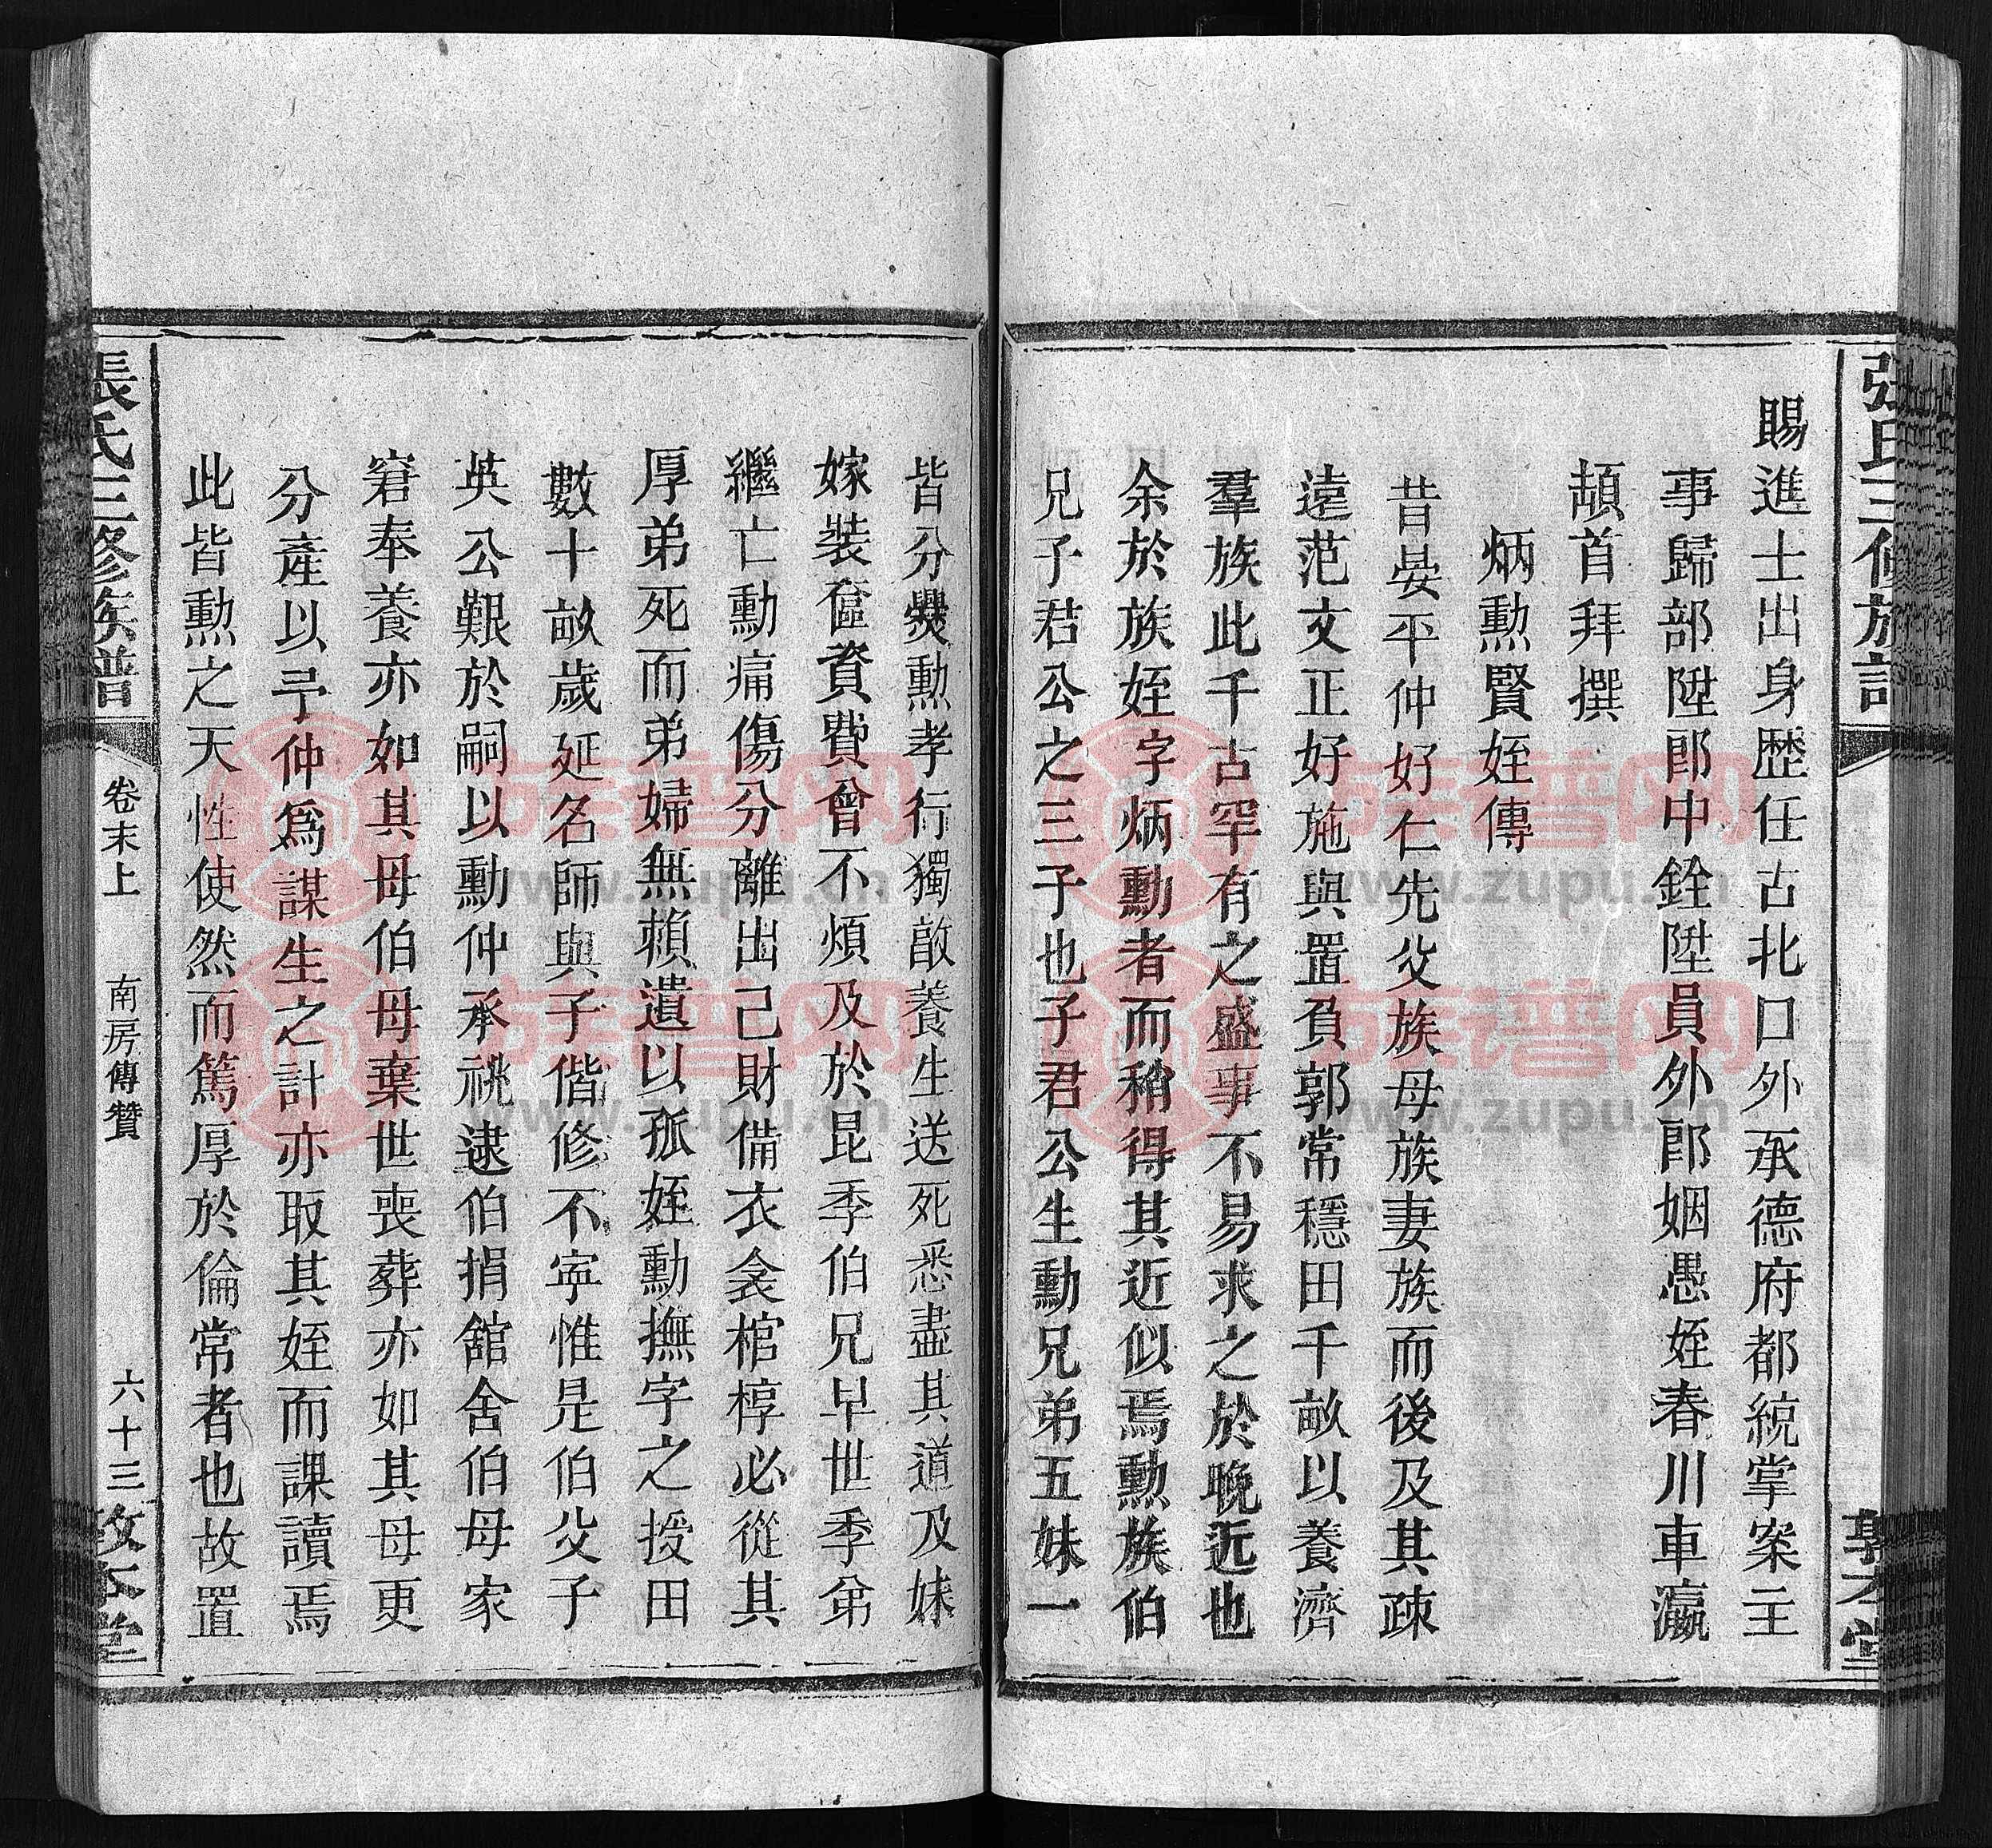 賜進士出身歴任古北口外承德府都統掌案主
事歸部陞郎中銓陞員外郎姻愚姪春川車瀛
頡首拜撰
炳勲賢姪傳
昔晏平仲好仁先父族母族妻族而後及其疎
遠范文正好施與置負郭常穩田千畝以養濟
羣族此千古罕有之盛事不易求之於晚近也
余於族姪字炳勲者而稍得其近似焉勲族伯
兄子君公之三子也子君公生勲兄弟五妹一
張氏三修族譜
卷末上
南房傳贊
六十三
敦本堂
皆分爨勲孝行獨敵養生送死悉盡其道及妹
嫁裝奩資費曾不煩及於昆季伯兄早世季弟
繼亡勲痛傷分離出己財備衣衾棺椁必從其
厚弟死而弟婦無賴遺以孤姪勲撫字之授田
數十畝歲延名師與子偕修不寜惟是伯父子
英公艱於嗣以勲仲承祧逮伯捐舘舍伯母家
窘奉養亦如其母伯母棄世喪葬亦如其母更
分產以予仲為謀生之計亦取其姪而課讀焉
此皆勲之天性使然而篤厚於倫常者也故置
張氏三修族譜
www.zupu.cn
族谱网
www.zupu.cn
族谱网
www.zupu.cn
族谱网
www.zupu.cn
族谱网